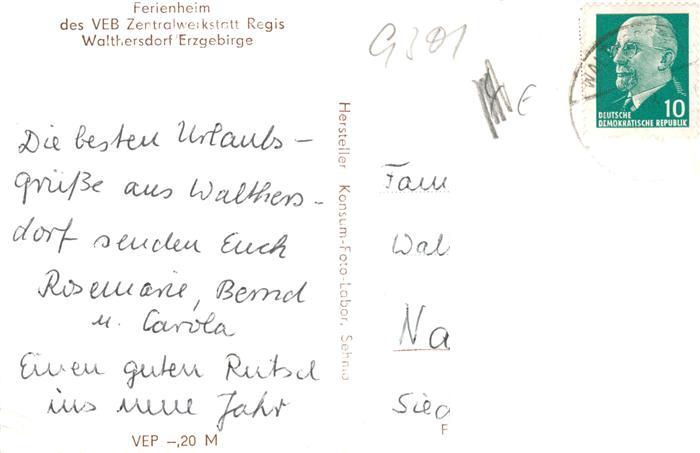 Ferienheim
des VEB Zentralwerkstatt Regis
Walthersdorf Erzgebirge
G381
€
DEUTSCHE
DEMOKRATISCHE REPUBLIK
10
Die besten Urlaubs-
grüße aus Walthers-
dorf senden Euch
Rosemarie, Bernd
u. Carola
Einen guten Rutsch
ins neue Jahr
VEP -,20 M
Hersteller Konsum-Foto-Labor, Sehma
Fam
Wal
Na
Sieg